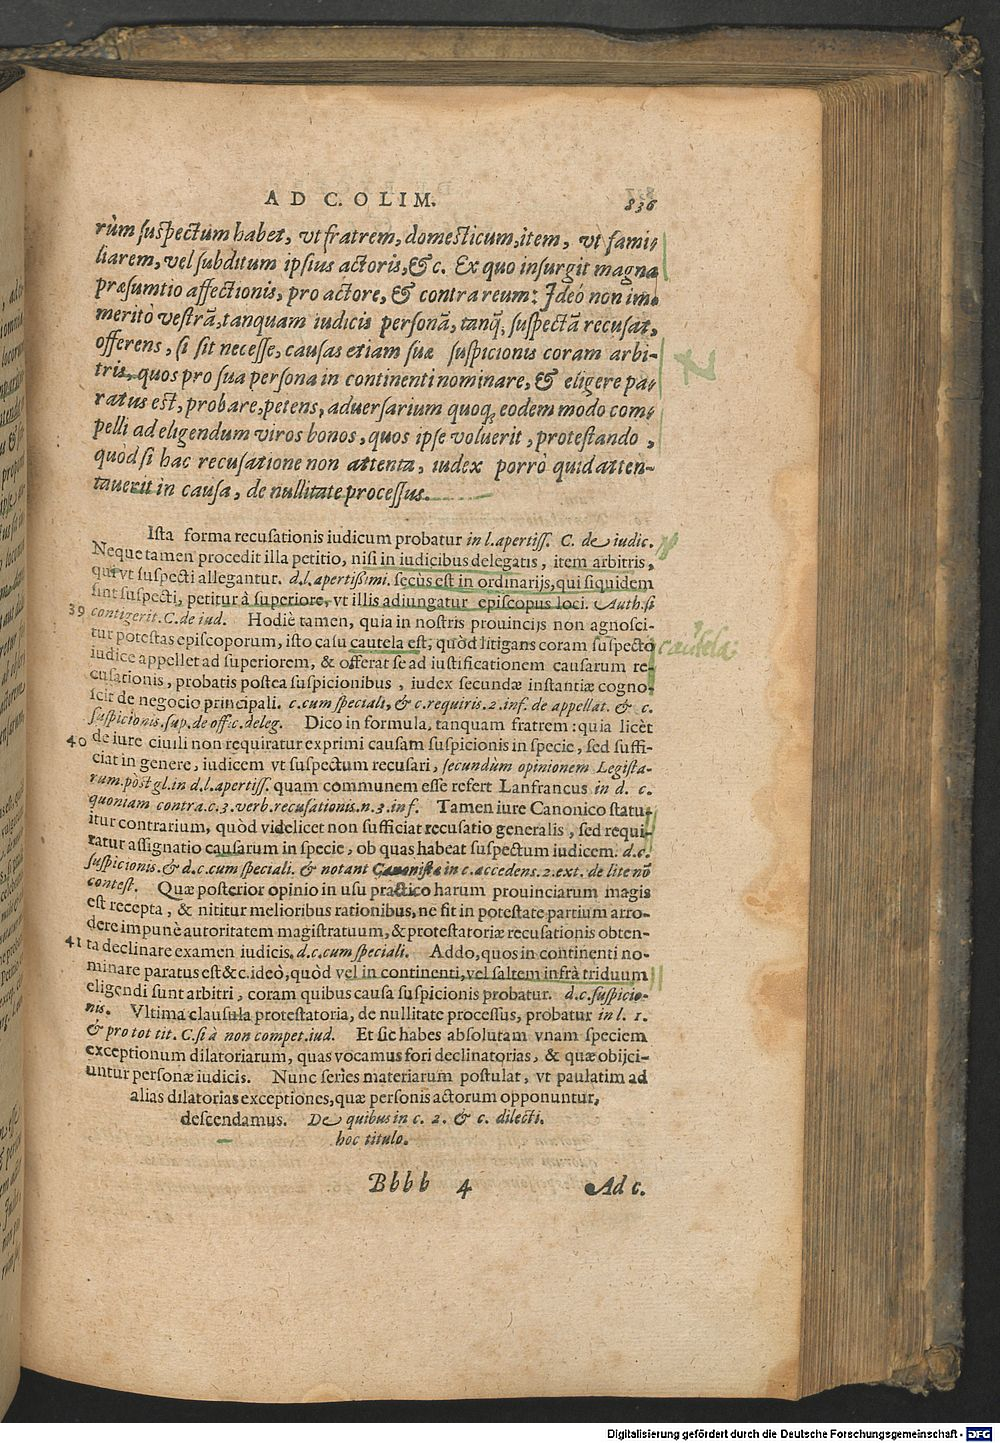 AD C. OLIM. 836
rùm suspectum habet, vt fratrem, domesticum, item, vt fami-
liarem, vel subditum ipsius actoris, & c. Ex quo insurgit magna
præsumtio affectionis, pro actore, & contra reum: Ideó non im-
meritò vestrã, tanquam iudicis personã, tanq̃, suspectã recusat,
offerens, si sit necesse, causas etiam suæ suspicionis coram arbi-
tris, quos pro sua persona in continenti nominare, & eligere pa-
ratus est, probare, petens, aduersarium quoq; eodem modo com-
pelli ad eligendum viros bonos, quos ipse voluerit, protestando,
quòd si hac recusatione non attenta, iudex porrò quid atten-
tauerit in causa, de nullitate processus.
Ista forma recusationis iudicum probatur in l. apertiss. C. de iudic.
Neque tamen procedit illa petitio, nisi in iudicibus delegatis, item arbitris,
qui vt suspecti allegantur. d. l. apertißimi. secùs est in ordinarijs, qui siquidem
sint suspecti, petitur â superiore, vt illis adiungatur episcopus loci. Auth. si
39 contigerit. C. de iud. Hodiè tamen, quia in nostris prouincijs non agnosci-
tur potestas episcoporum, isto casu cautela est, quòd litigans coram suspecto
cautela
iudice appellet ad superiorem, & offerat se ad iustificationem causarum re-
cusationis, probatis postea suspicionibus, iudex secundæ instantiæ cogno-
scit de negocio principali. c. cum speciali, & c. requiris. 2. inf. de appellat. & c.
suspicionis. sup. de offic. deleg. Dico in formula, tanquam fratrem: quia licèt
40 de iure ciuili non requiratur exprimi causam suspicionis in specie, sed suffi-
ciat in genere, iudicem vt suspectum recusari, secundum opinionem Legista-
rum. pòst gl. in d. l. apertiss. quam communem esse refert Lanfrancus in d. c.
quoniam contra. c. 3. verb. recusationis. n. 3. inf. Tamen iure Canonico statu-
itur contrarium, quòd videlicet non sufficiat recusatio generalis, sed requi-
ratur assignatio causarum in specie, ob quas habeat suspectum iudicem. d. c.
suspicionis. & d. c. cum speciali. & notant Canonistæ in c. accedens. 2. ext. de lite nõ
contest. Quæ posterior opinio in usu practico harum prouinciarum magis
est recepta, & nititur melioribus rationibus, ne sit in potestate partium arro-
dere impunè autoritatem magistratuum, & protestatoriæ recusationis obten-
41 ta declinare examen iudicis. d. c. cum speciali. Addo, quos in continenti no-
minare paratus est & c. ideò, quòd vel in continenti, vel saltem infrà triduum
eligendi sunt arbitri, coram quibus causa suspicionis probatur. d. c. suspicio-
nis. Vltima clausula protestatoria, de nullitate processus, probatur in l. 1.
& pro tot tit. C. si à non compet. iud. Et sic habes absolutam vnam speciem
exceptionum dilatoriarum, quas vocamus fori declinatorias, & quæ obijci-
untur personæ iudicis. Nunc series materiarum postulat, vt paulatim ad
alias dilatorias exceptiones, quæ personis actorum opponuntur,
descendamus. De quibus in c. 2. & c. dilecti.
hoc titulo.
Bbbb 4 Ad c.
Digitalisierung gefördert durch die Deutsche Forschungsgemeinschaft - DFG